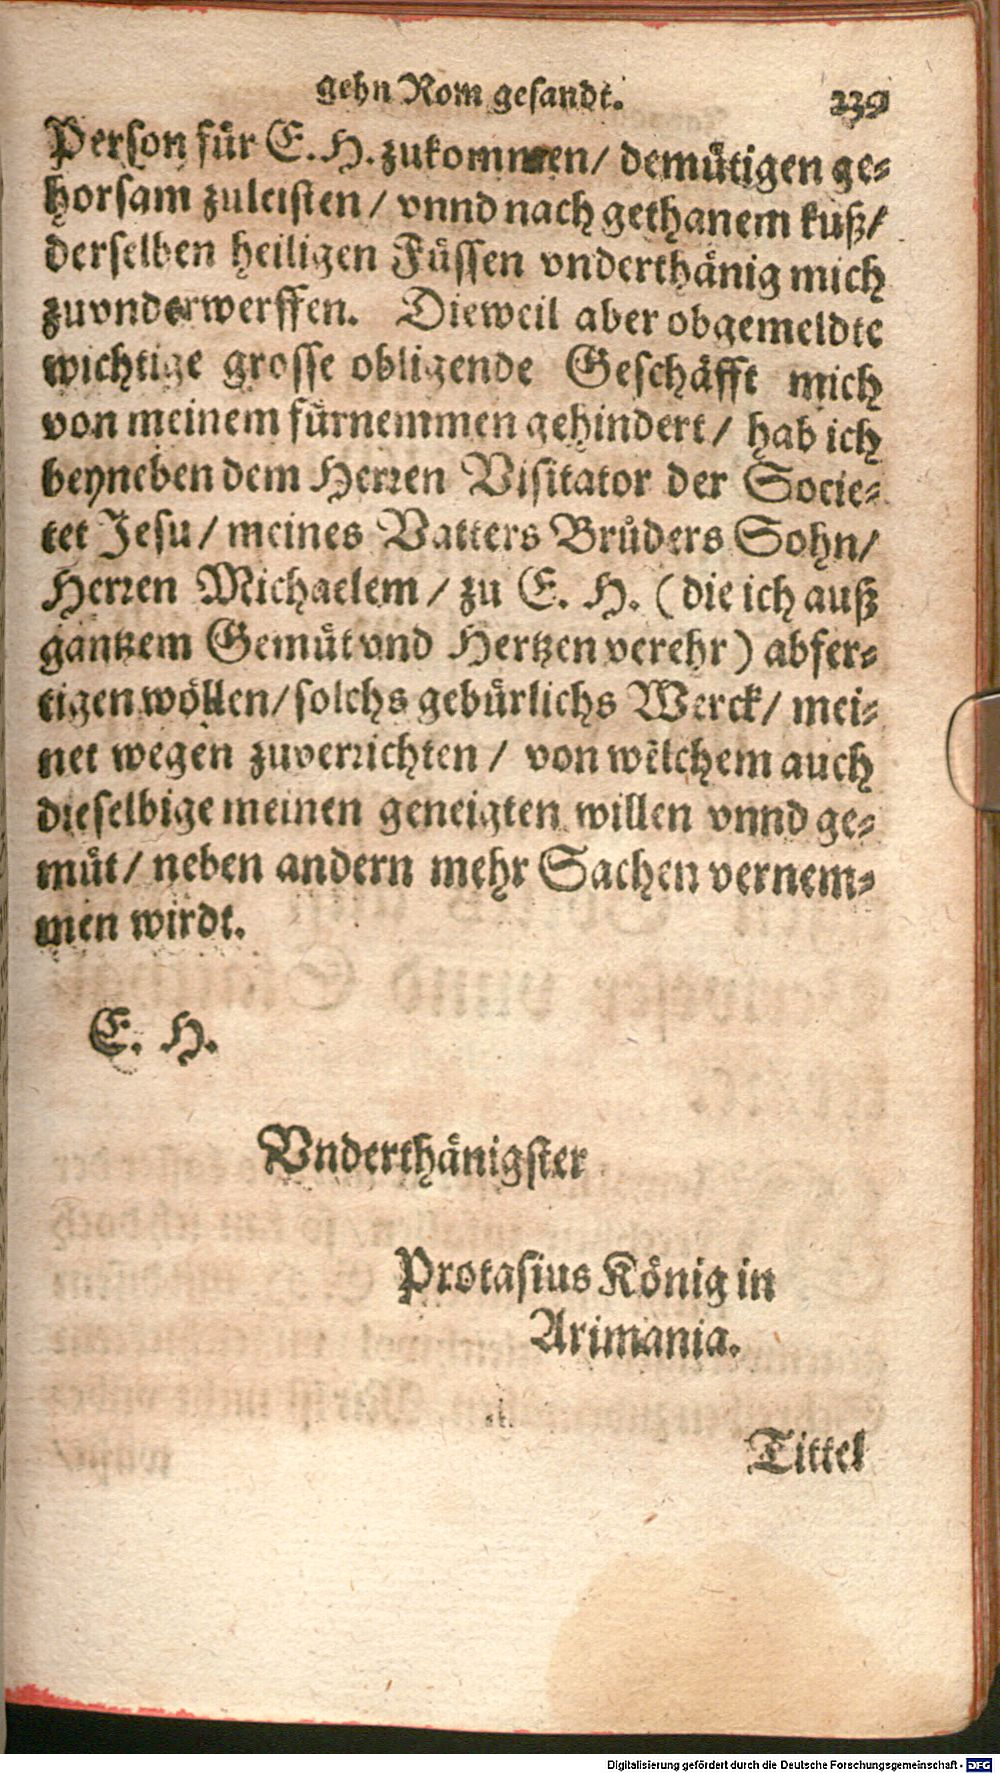 gehn Rom gesandt. 239
Person für E. H. zukommen/ demütigen ge⸗
horsam zuleisten / vnnd nach gethanem kuß/
derselben heiligen Füssen vnderthänig mich
zuvnderwerffen. Dieweil aber obgemeldte
wichtige grosse obligende Geschäfft mich
von meinem fürnemmen gehindert / hab ich
beyneben dem Herren Visitator der Socie⸗
tet Jesu / meines Vatters Brůders Sohn/
Herren Michaelem / zu E. H. (die ich auß
gantzem Gemüt vnd Hertzen verehr) abfer⸗
tigen wöllen/ solchs gebürlichs Werck/ mei⸗
net wegen zuverrichten / von welchem auch
dieselbige meinen geneigten willen vnnd ge⸗
müt / neben andern mehr Sachen vernem⸗
men wirdt.
E. H.
Vnderthänigster
Protasius König in
Arimania.
Tittel
Digitalisierung gefördert durch die Deutsche Forschungsgemeinschaft - DFG